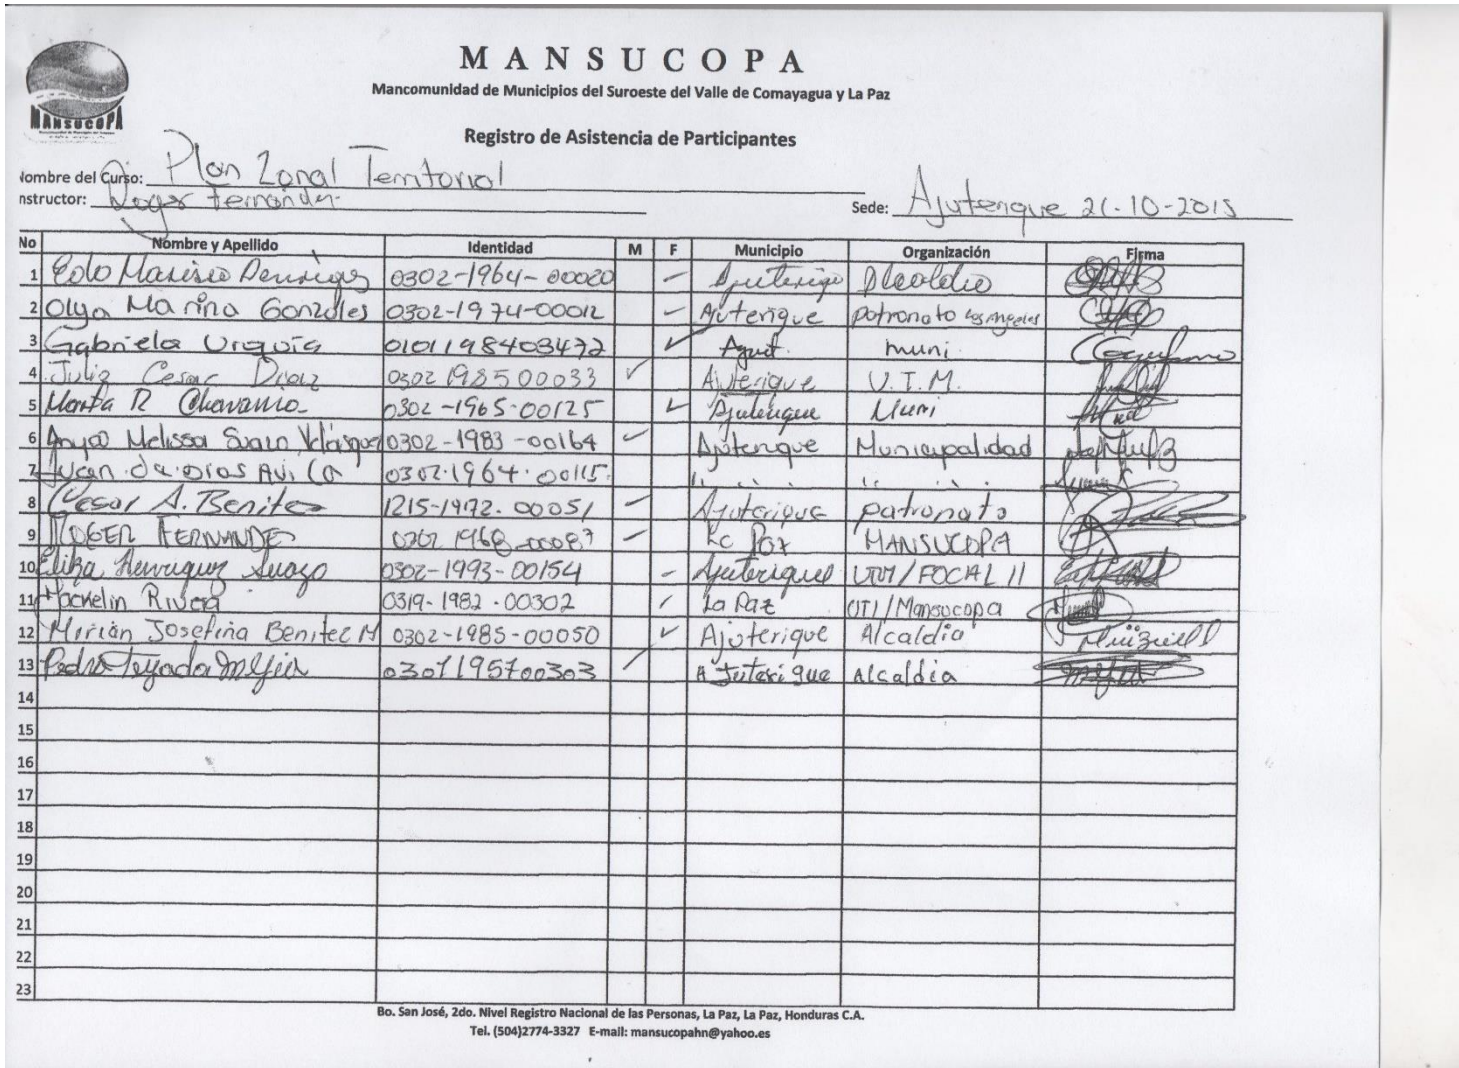 MANSUCOPA
MANSUCOPA
Mancomunidad de Municipios del Suroeste del Valle de Comayagua y La Paz
Registro de Asistencia de Participantes
Nombre del Curso: Plan Zonal Territorial
nstructor: Roger Fernández
Sede: Ajuterique 21-10-2015
No Nombre y Apellido Identidad M F Municipio Organización Firma
1 0302-1964-00020 Ajuterique Alcaldia
2 Olga Marina Gonzales 0302-1974-00012 Ajuterique patronato Los Angeles
3 Gabriela Urquía 0101198403472 Ajut. muni.
4 Julio Cesar Diaz 0302 1985 00033 Ajuterique U.T.M.
5 Marta R 0302-1965-00125 Ajuterique Muni
6 Melissa Velásquez 0302-1983-00164 Ajuterique Municipalidad
7 Juan de Dios Avila 0302-1964-00115 " "
8 Cesar A. Benitez 1215-1972-00051 Ajuterique patronato
9 ROGER FERNANDEZ La Paz MANSUCOPA
10 Henriquez Suazo 0302-1993-00154 Ajuterique UTM/FOCAL II
11 Hackelin Rivera 0319-1982-00302 La Paz UTI/Mansucopa
12 Mirian Josefina Benitez M 0302-1985-00050 Ajuterique Alcaldia
13 Pedro Tejada Mejia 0301195700303 Ajuterique Alcaldia
14
15
16
17
18
19
20
21
22
23
Bo. San José, 2do. Nivel Registro Nacional de las Personas, La Paz, La Paz, Honduras C.A.
Tel. (504)2774-3327 E-mail: mansucopahn@yahoo.es